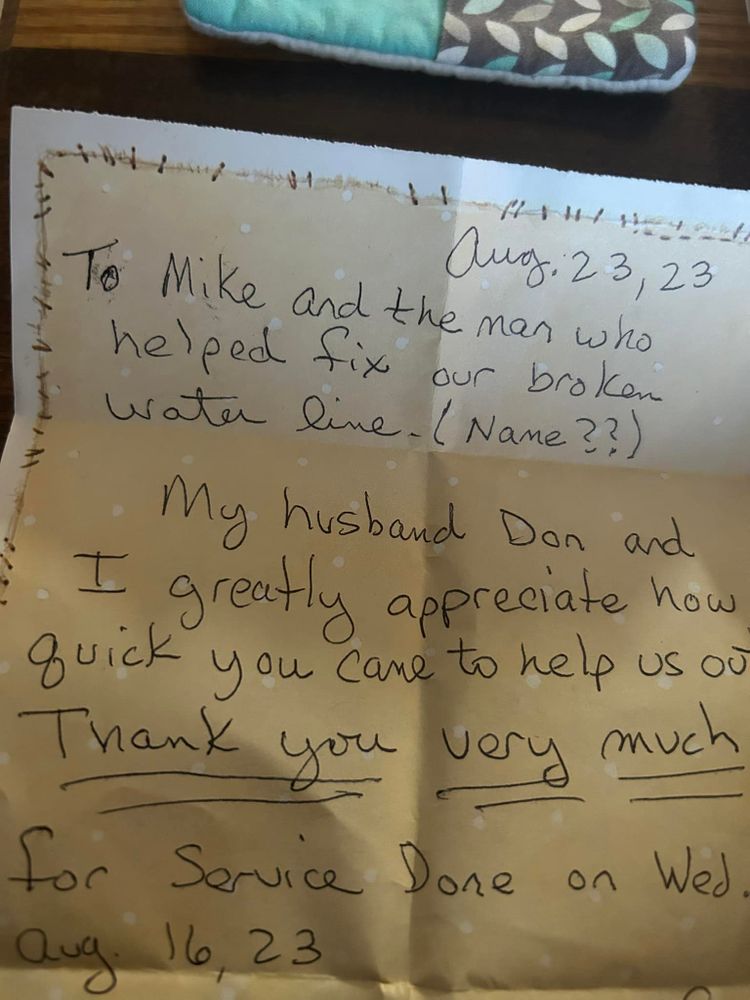 Aug. 23, 23
To Mike and the man who
helped fix our broken
water line. (Name??)
My husband Don and
I greatly appreciate how
quick you came to help us out
Thank you very much
for Service Done on Wed.
Aug. 16, 23